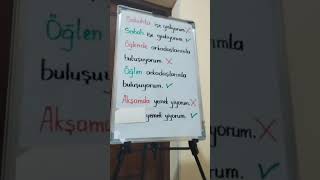 Sabahta işe gidiyorum. X
Sabah işe gidiyorum. ✓
Öğlende arkadaşlarımla
buluşuyorum. X
Öğlen arkadaşlarımla
buluşuyorum. ✓
Akşamda yemek yiyorum. X
yemek yiyorum. ✓